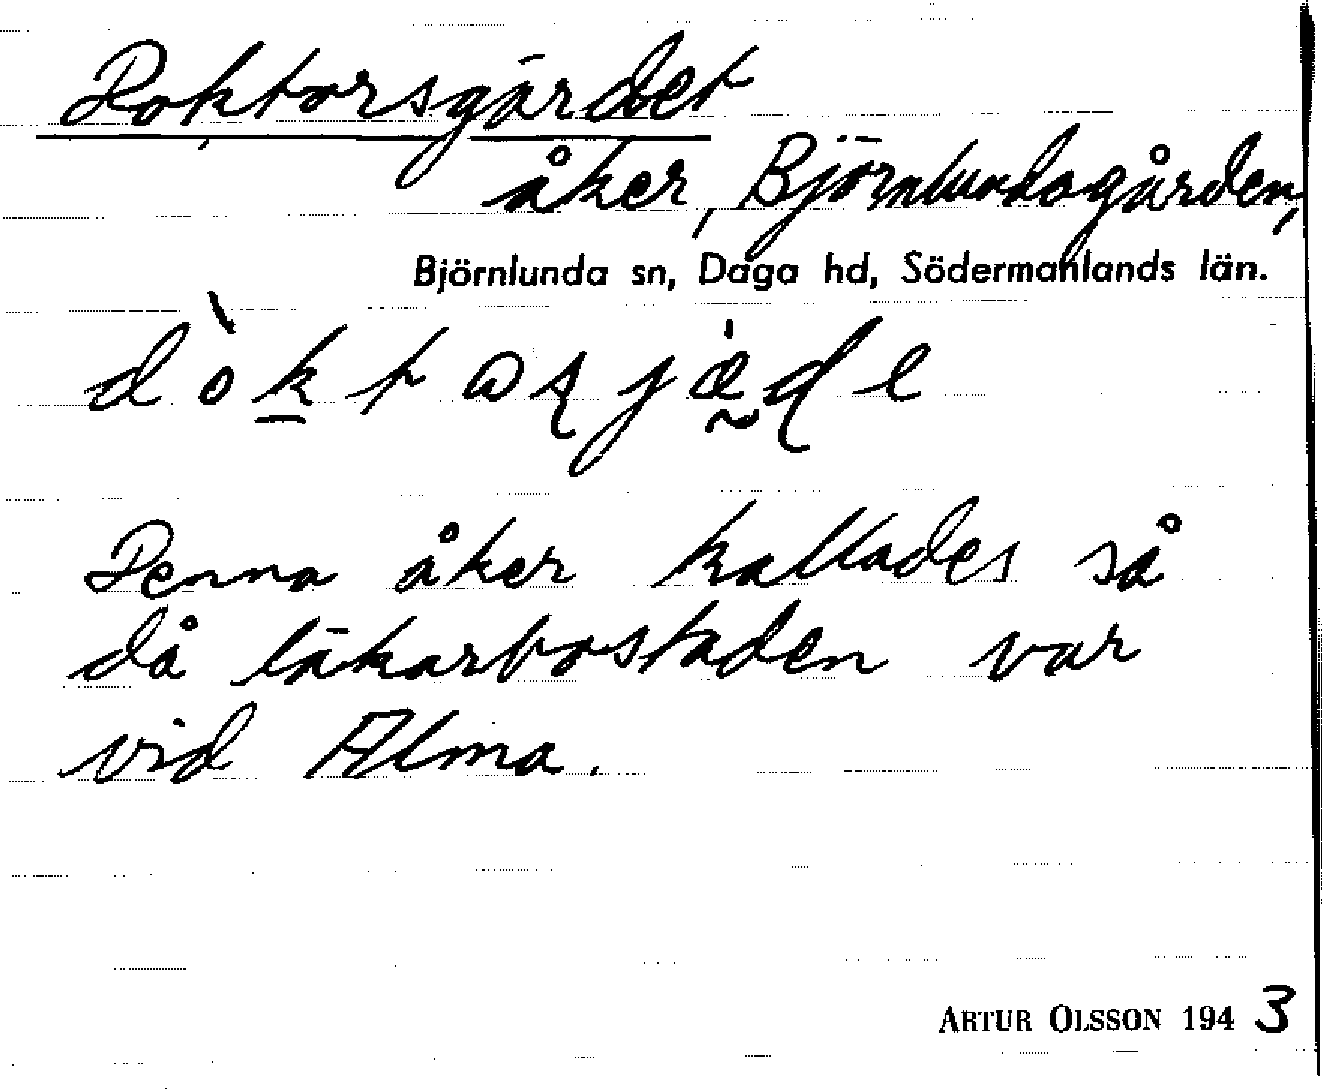 Doktorsgärdet
åker, Björnlundagården,
Björnlunda sn, Daga hd, Södermanlands län.
Denna åker kallades så
då läkarbostaden var
vid Alma.
ARTUR OLSSON 1943